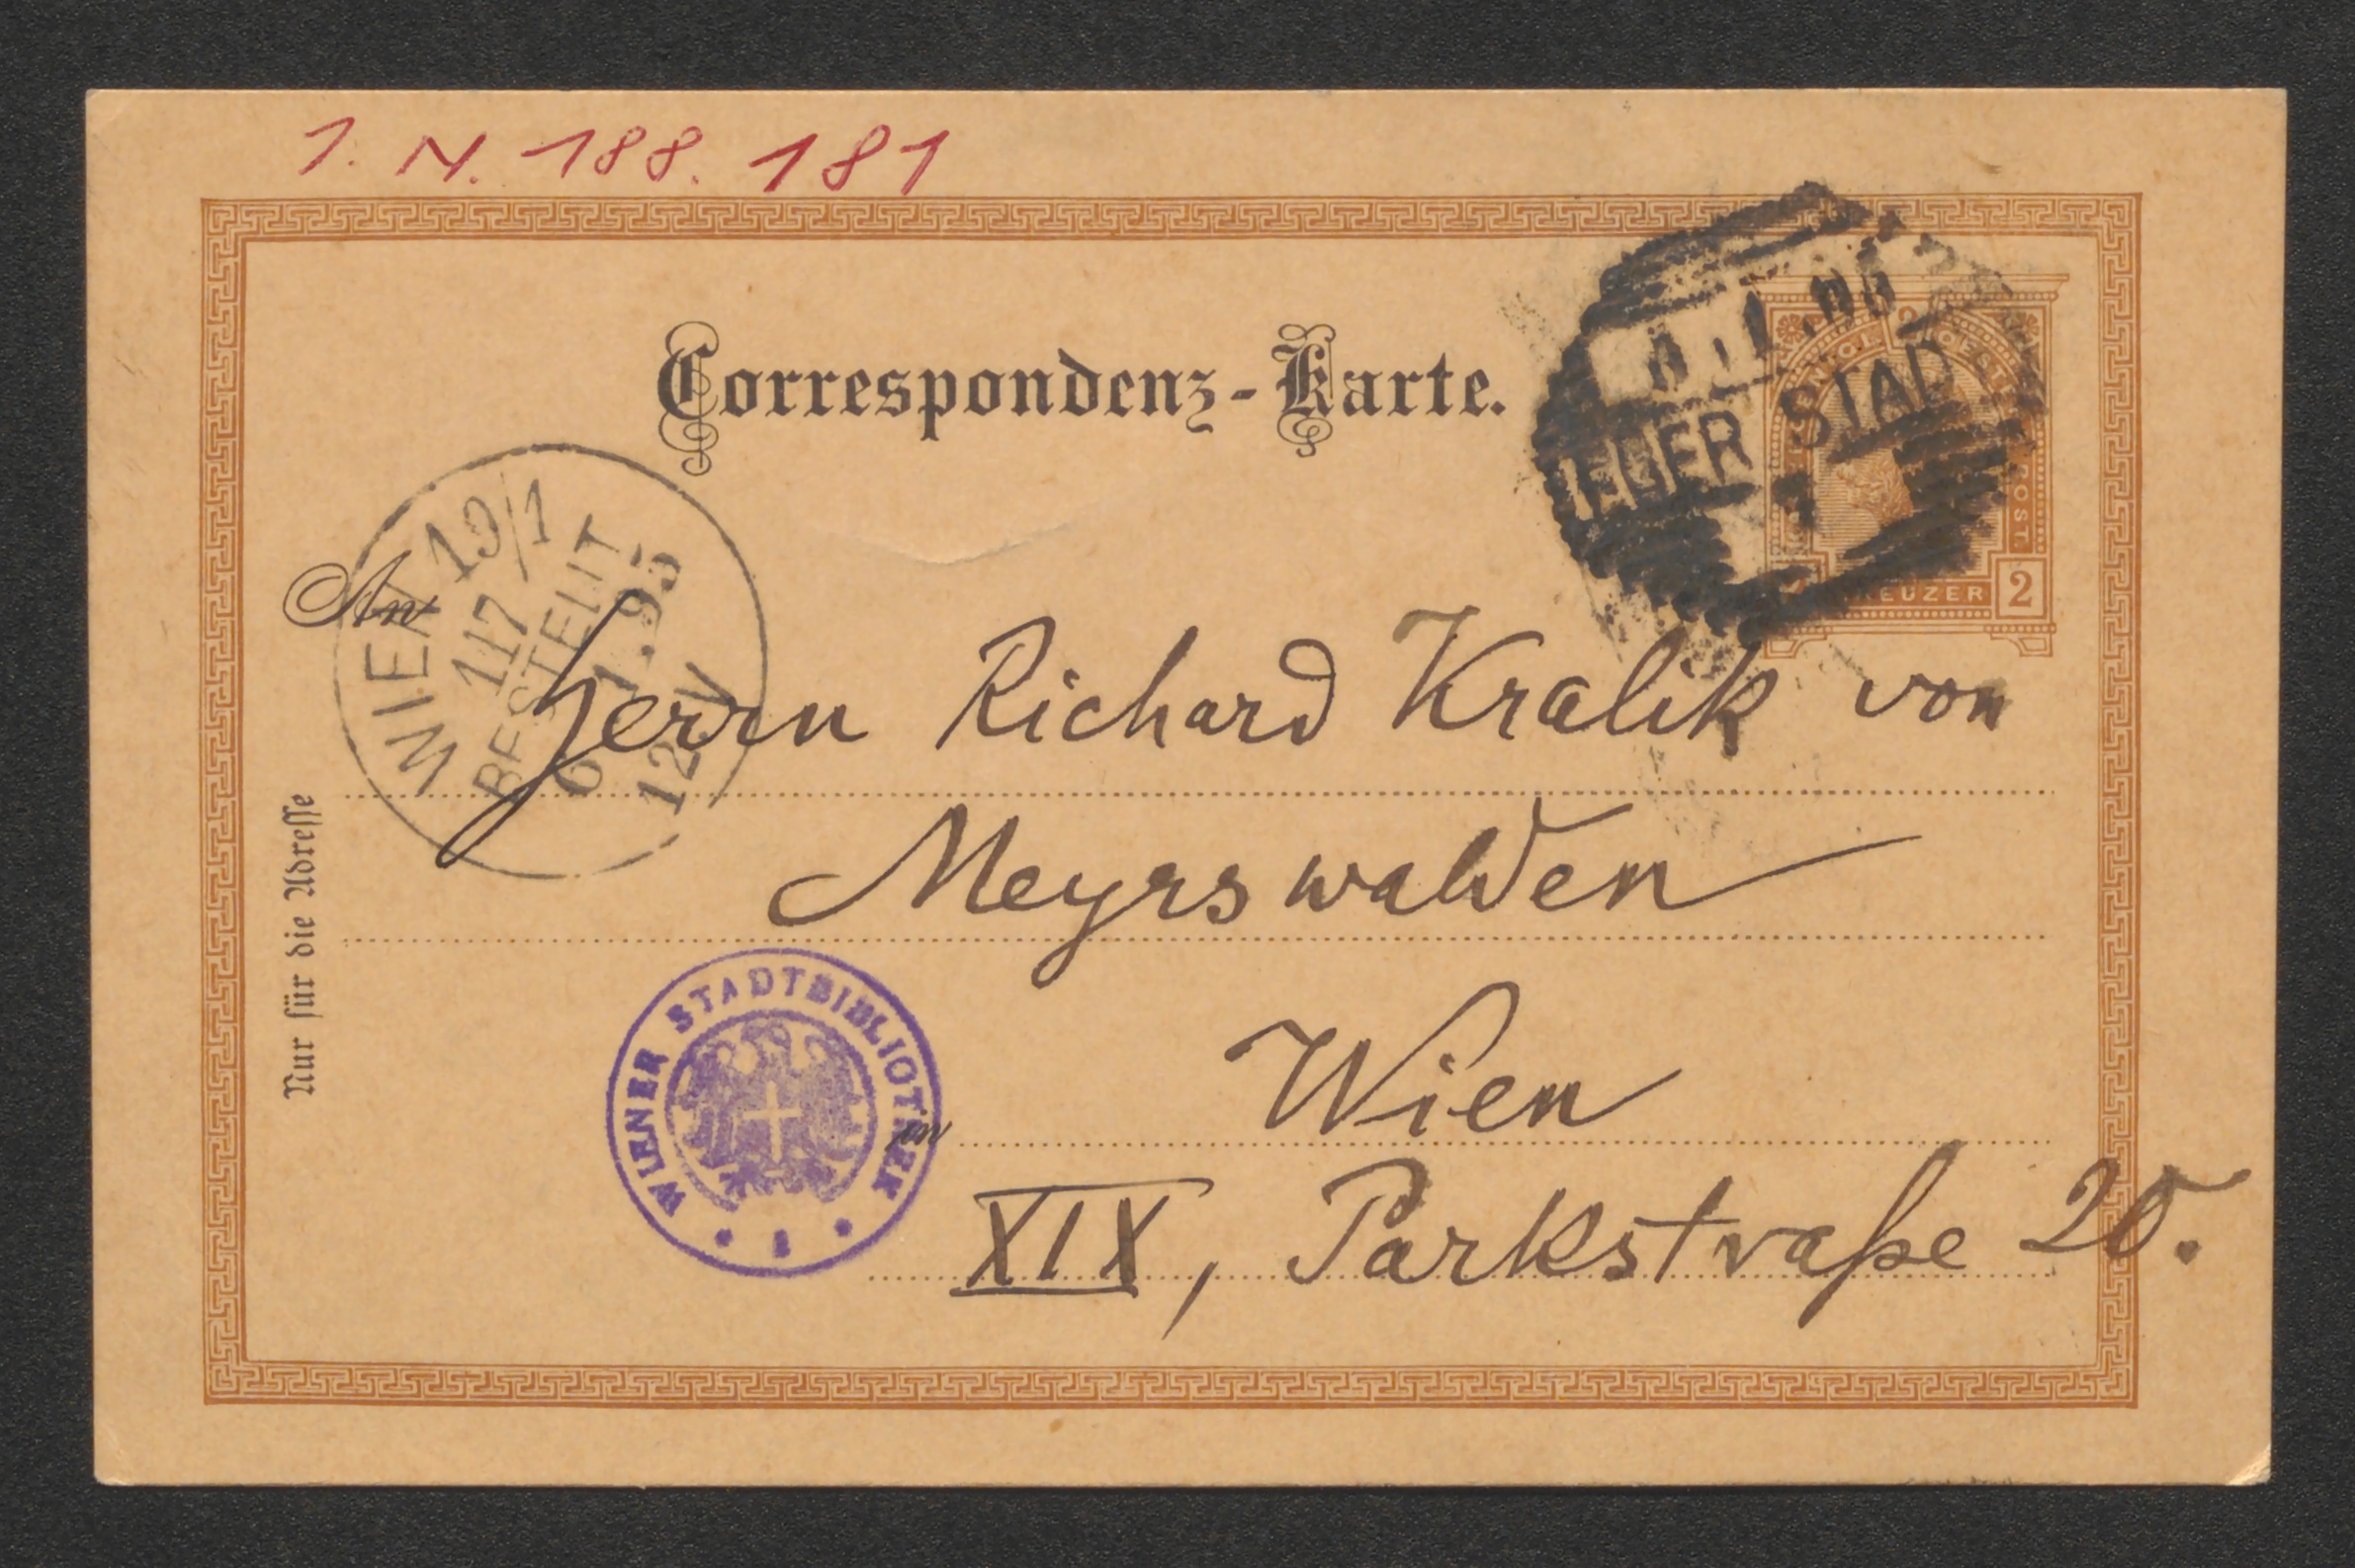 I. N. 188. 181
Correspondenz-Karte.
EGER STADT
KREUZER 2
POST.
WIEN 19/1
117
BESTELLT
6.1.95
12.V
An
Herrn Richard Kralik von
Meyrswalden
Nur für die Adresse
WIENER STADTBIBLIOTHEK
in
Wien
XIX, Parkstraße 20.